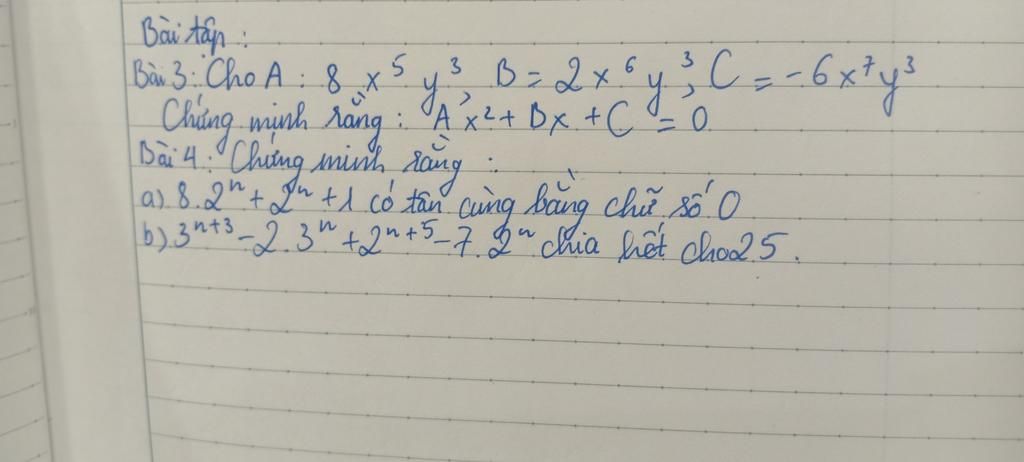 Bài tập :
Bài 3 : Cho A : 8 x⁵ y³, B = 2 x⁶ y³, C = -6x⁷y³
Chứng minh rằng : A x² + Bx + C = 0
Bài 4 : Chứng minh rằng :
a) 8.2ⁿ + 2ⁿ + 1 có tân cùng bằng chữ số 0
b) 3ⁿ⁺³ - 2.3ⁿ + 2ⁿ⁺⁵ - 7.2ⁿ chia hết cho 25.